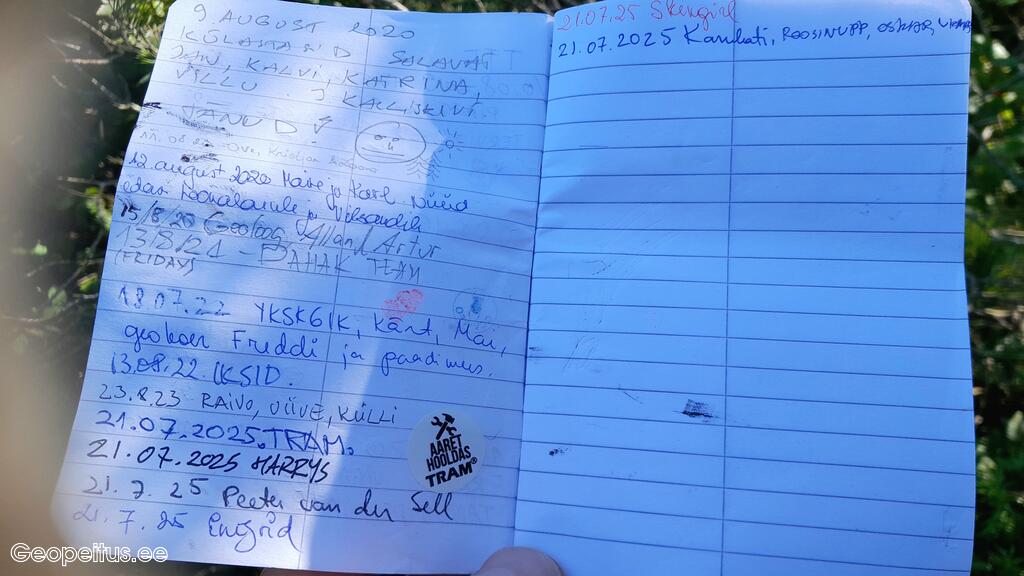 9. AUGUST 2020
KÜLASTANID
JAN, KALVI, KATRINA,
VILLU
TÄNUD!
12. august 2020 Mare ja Karl. Nüüd
edasi ja
15/8/20 Geoloog Allan / Artur
13/8/21 - PAHAK TEAM
(FRIDAY)
18.07.22 YKSK6IK, Kärt, Mai,
geokoer Freddi ja paadimees.
13.08.22 IKSID.
23.8.23 RAIVO, ÜIVE, KÜLLI
21.07.2025. TRAM.
21.07.2025 HARRYS
21.7.25 Peeter van der Sell
21.7.25 Engrid
AARET
HOOLDAS
TRAM®
21.07.25 Skengirl
21.07.2025 Karukati, ROOSINUPP, OSKAR,
Geopeitus.ee